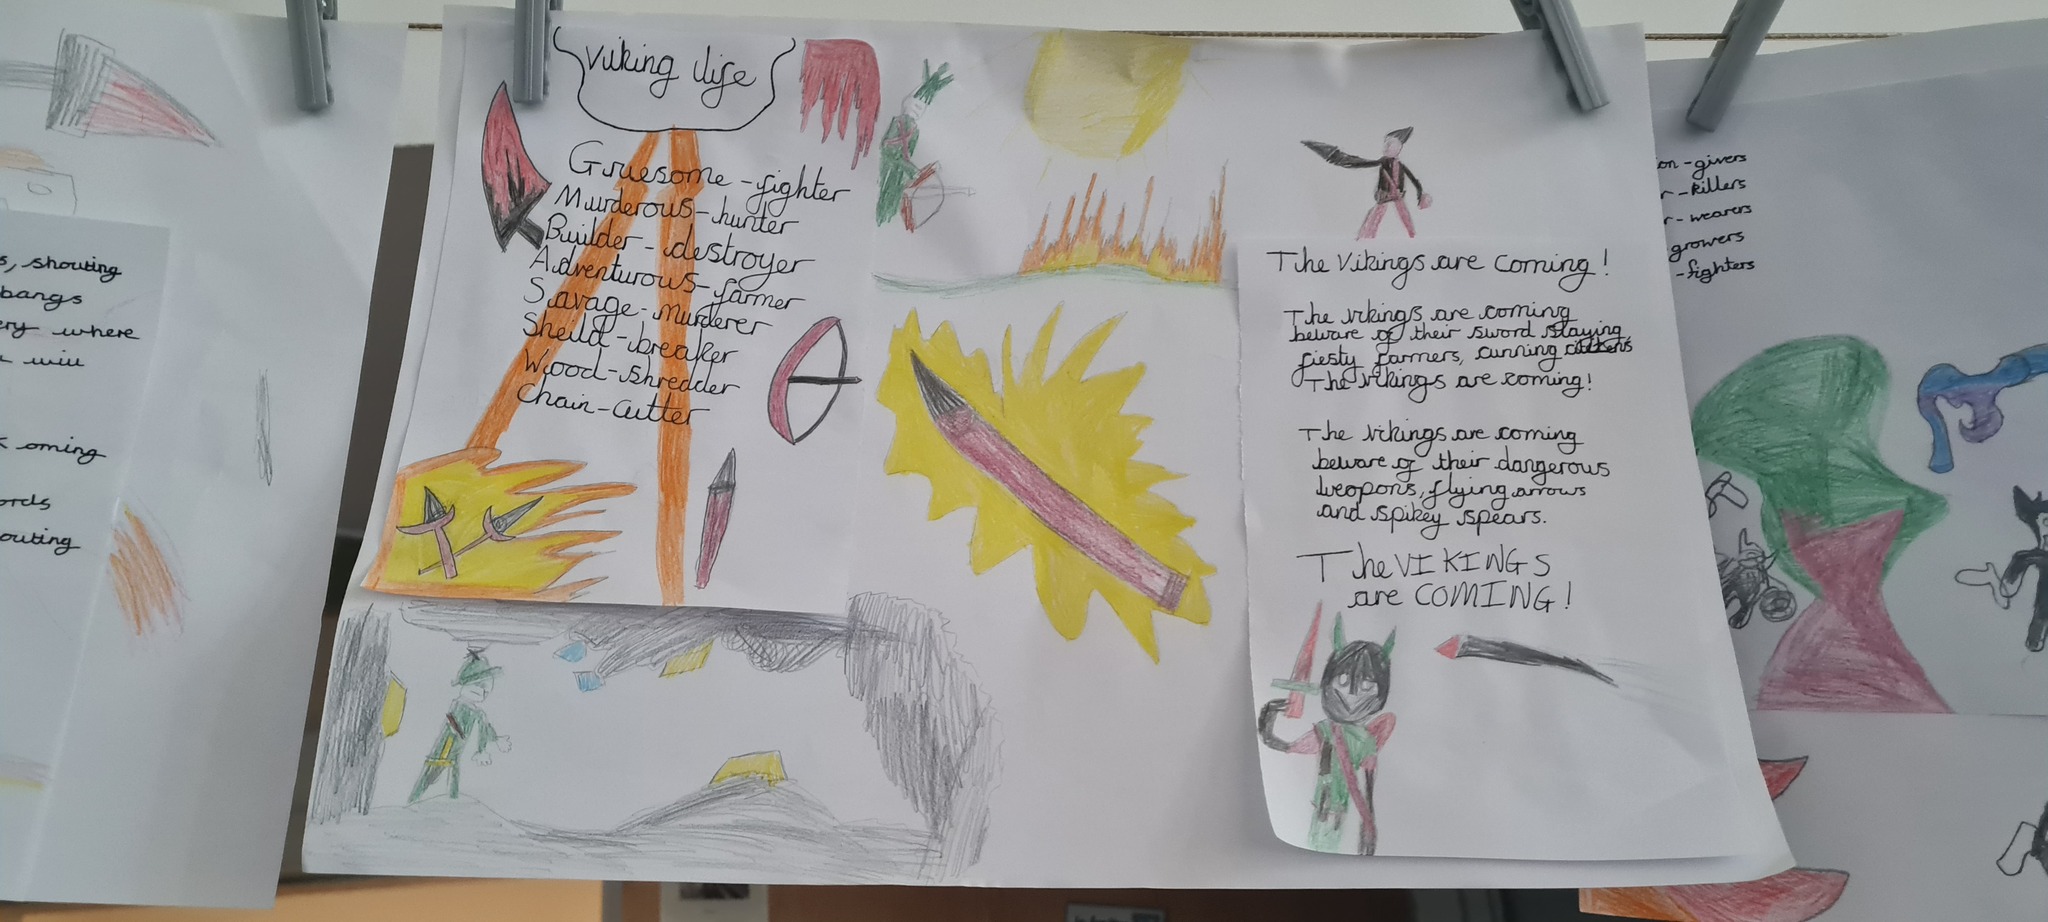 s, shouting
bangs
ery where
will
oming
ords
outing
Viking life
Gruesome-fighter
Murderous-hunter
Builder-destroyer
Adventurous-farmer
Savage-murderer
Sheild-breaker
Wood-shredder
Chain-cutter
The Vikings are coming!
The vikings are coming
beware of their sword slaying
fiesty farmers, cunning
The vikings are coming!
The vikings are coming
beware of their dangerous
weopons, flying arrows
and spikey spears.
The VIKINGS
are COMING!
on-givers
r-killers
r-wearers
growers
-fighters